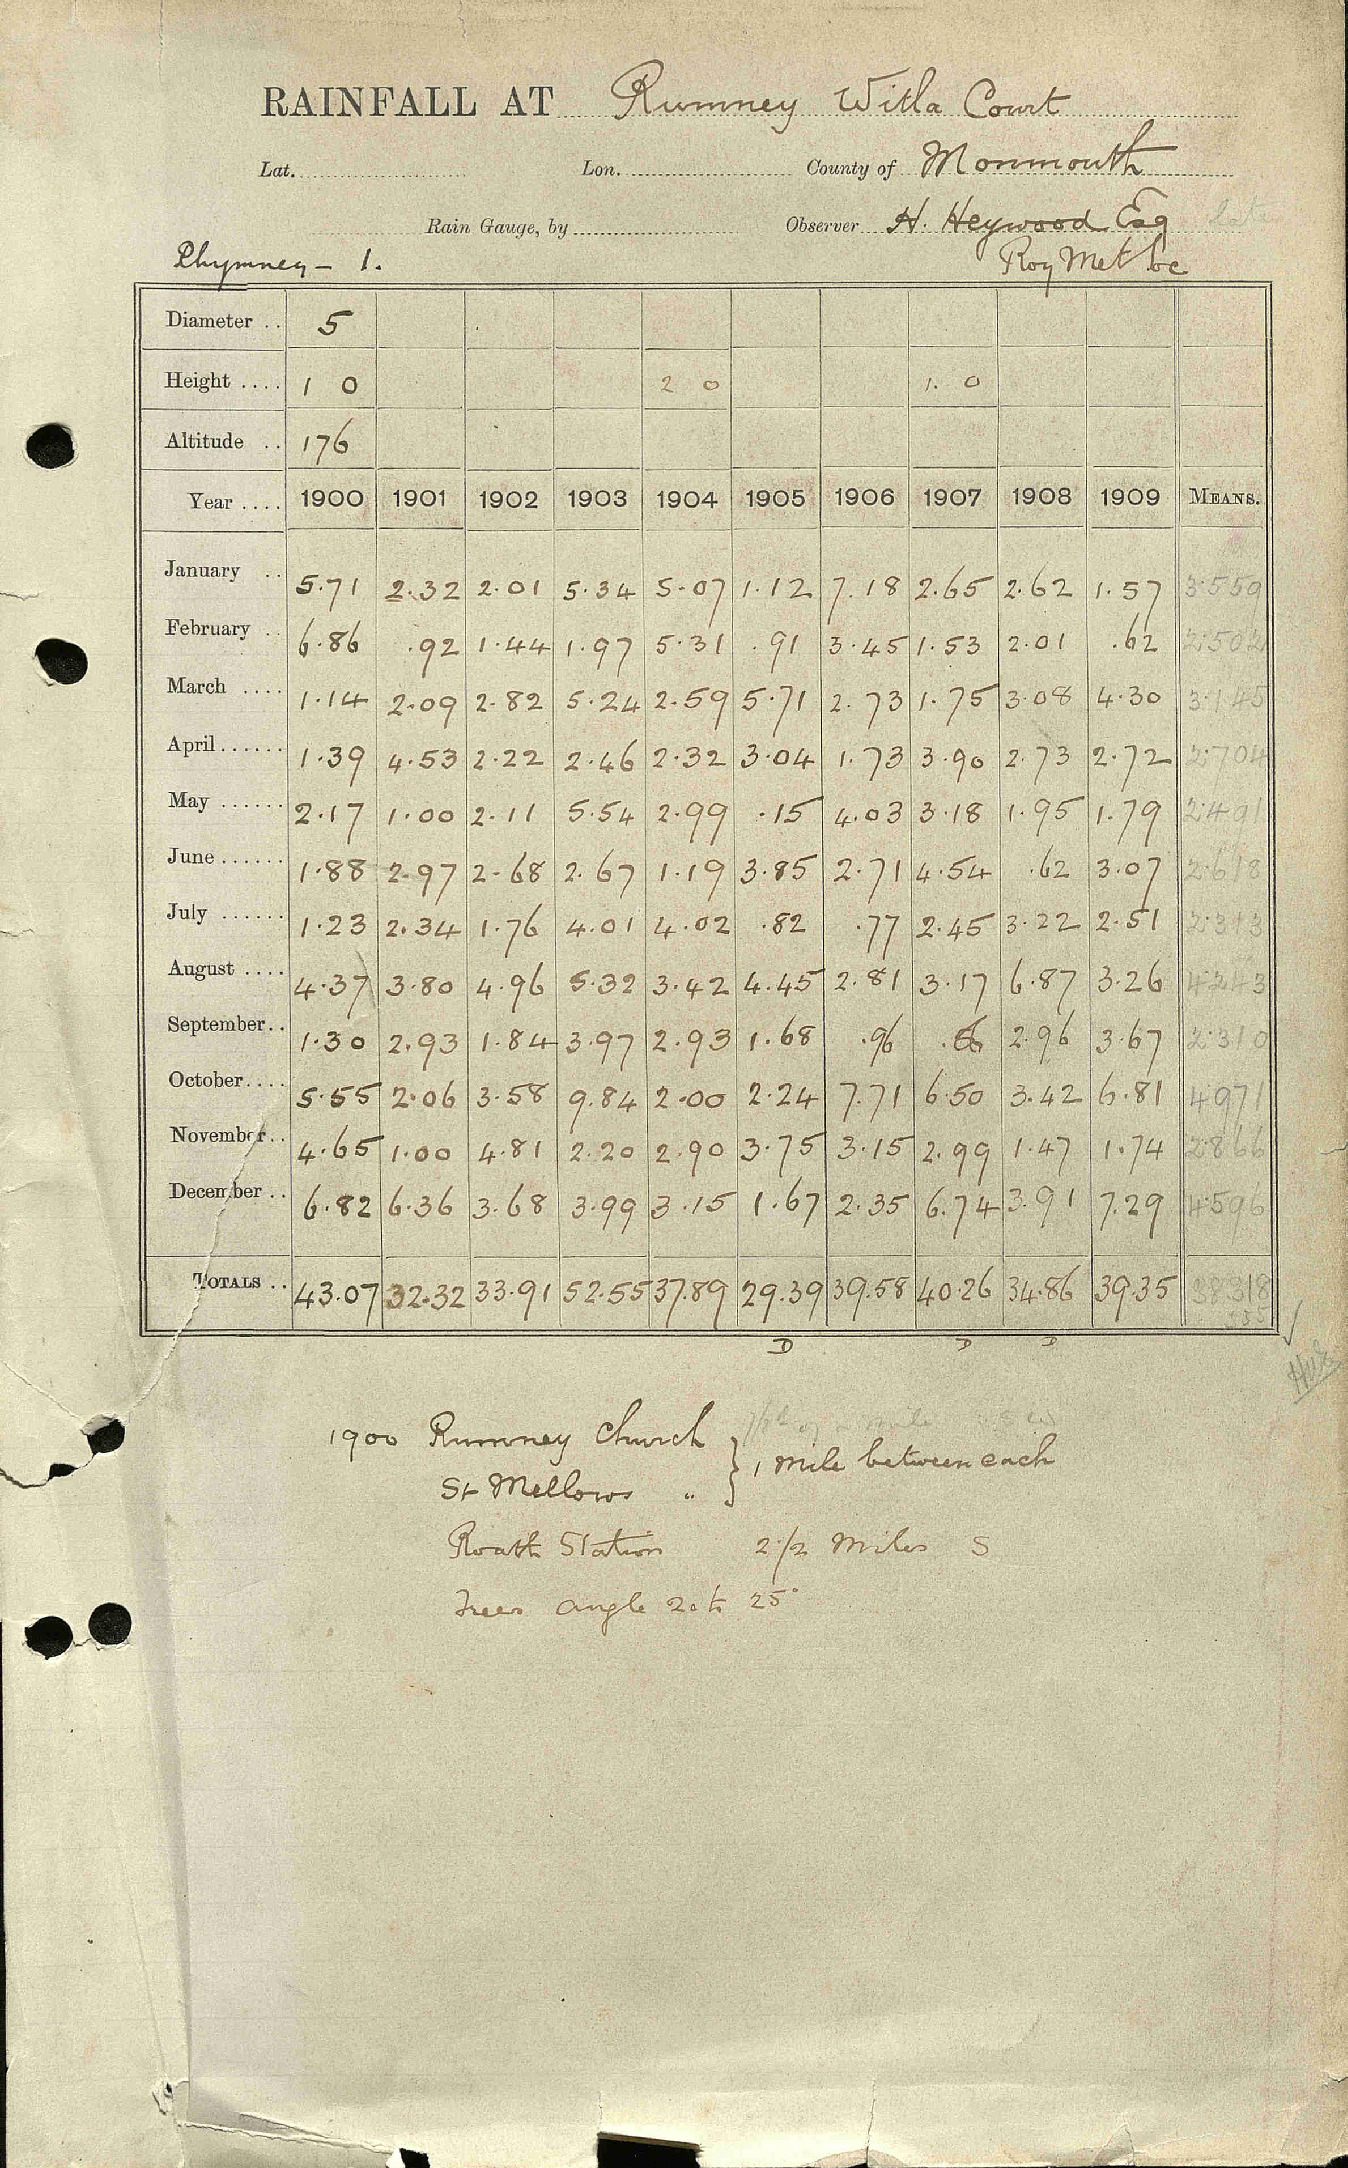 RAINFALL AT Rumney Witla Court
Lat. Lon. County of Monmouth
Rain Gauge, by Observer H. Heywood Esq late
Rhymney – 1. Roy Met Soc
Diameter .. 5
Height .... 1 0 2 0 1. 0
Altitude .. 176
Year .... 1900 1901 1902 1903 1904 1905 1906 1907 1908 1909 MEANS.
January .. 5.71 2.32 2.01 5.34 5.07 1.12 7.18 2.65 2.62 1.57 3.559
February .. 6.86 .92 1.44 1.97 5.31 .91 3.45 1.53 2.01 .62 2.502
March .... 1.14 2.09 2.82 5.24 2.59 5.71 2.73 1.75 3.08 4.30 3.145
April...... 1.39 4.53 2.22 2.46 2.32 3.04 1.73 3.90 2.73 2.72 2.704
May ...... 2.17 1.00 2.11 5.54 2.99 .15 4.03 3.18 1.95 1.79 2.491
June...... 1.88 2.97 2.68 2.67 1.19 3.85 2.71 4.54 .62 3.07 2.618
July ...... 1.23 2.34 1.76 4.01 4.02 .82 .77 2.45 3.22 2.51 2.313
August .... 4.37 3.80 4.96 5.32 3.42 4.45 2.81 3.17 6.87 3.26 4.243
September.. 1.30 2.93 1.84 3.97 2.93 1.68 .96 .86 2.96 3.67 2.310
October.... 5.55 2.06 3.58 9.84 2.00 2.24 7.71 6.50 3.42 6.81 4.971
November.. 4.65 1.00 4.81 2.20 2.90 3.75 3.15 2.99 1.47 1.74 2.866
December .. 6.82 6.36 3.68 3.99 3.15 1.67 2.35 6.74 3.91 7.29 4.596
TOTALS .. 43.07 32.32 33.91 52.55 37.89 29.39 39.58 40.26 34.86 39.35 38.318
D D D
1900 Rumney Church
St Mellows " } 1 mile between each
Roath Station 2 1/2 Miles S
Trees angle 20 to 25°